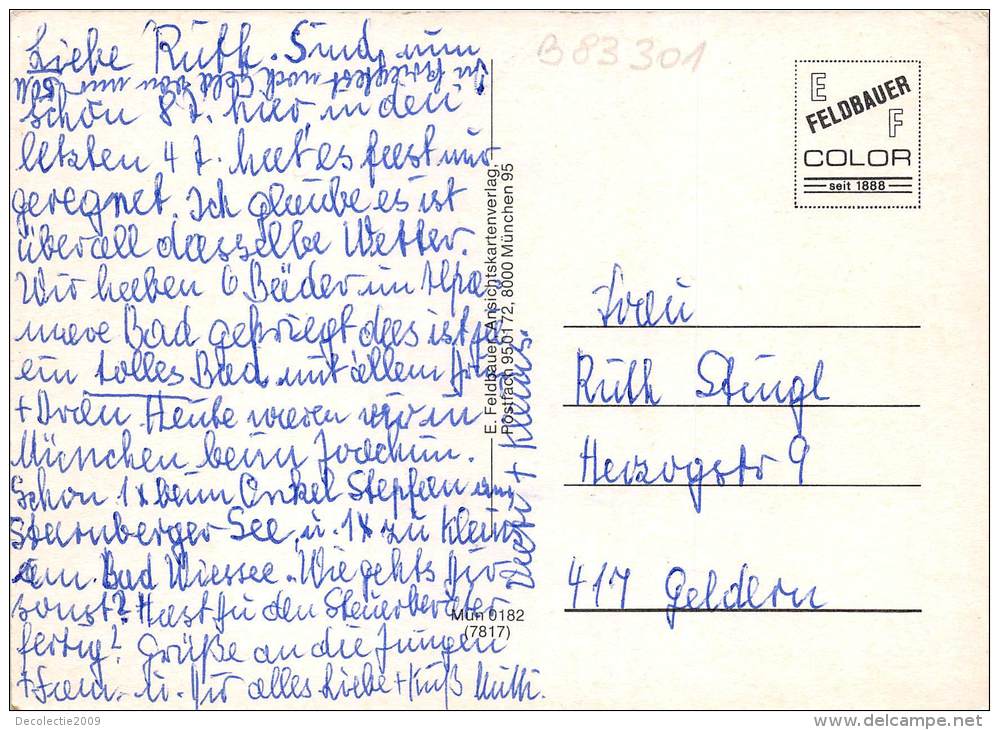 Liebe Ruth. Sind nun
Du kriegtest noch Geld von mir
schön 8 T. hier, in den
letzten 4 T. hat es fast nur
geregnet. Ich glaube es ist
überall dasselbe Wetter.
Wir haben 6 Bäder im Alpa
mare Bad gekriegt das ist ja
ein tolles Bad mit allem
+ Dran. Heute waren wir in
München beim Joachim.
Schon 1x beim Onkel Stepfan am
Starnberger See u. 1x zu Klein
am Bad Wiessee. Wie gehts Dir
sonst? Hast Du den Steuerberater
fertig? Grüße an die Jungen
+ Fam. u. Dir alles Liebe + Kuß Mutti.
+ Klaus.
B 83301
E
FELDBAUER
F
COLOR
seit 1888
E. Feldbauer, Ansichtskartenverlag,
Postfach 950172, 8000 München 95
Mün 0182
(7817)
Frau
Ruth Stingl
Herzogstr 9
417 Geldern
Decolectie2009
delcampe.net